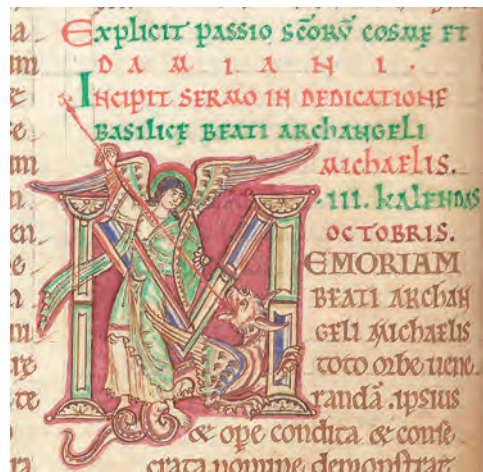 Explicit passio scōrū cosmę et
DAMIANI.
Incipit sermo in dedicatione
basilicę beati archangeli
michaelis.
.III. kalendas
octobris.
MEMORIAM
beati archan
geli michaelis
toto orbe uene
randā. ipsius
& ope condita & conse
crata nomine demonstrat